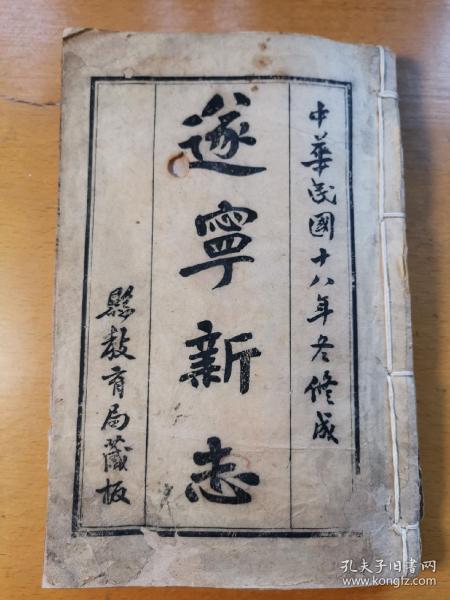 中華民國十八年冬修成
遂寧新志
縣教育局藏板
孔夫子旧书网
www.kongfz.com